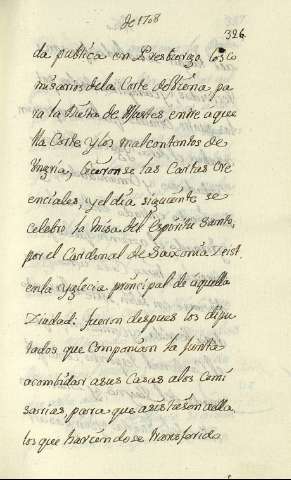 de 1708
326
da publica en Presburgo, los Co
misarios de la Corte de Viena pa
ra la Dieta de Martes entre aque
lla Corte, y los malcontentos de
Ungria, leieronse las Cartas Cre
enciales, y el dia siguiente se
celebrò la Misa del Espiritu Santo,
por el Cardenal de Saxonia Zeist,
en la yglecia principal de aquella
Ziudad: fueron despues los dipu
tados que Componian la Junta
acombidar a sus Casas a los Comi
sarios, para que asistiesen a ella,
los que haviendose transferido